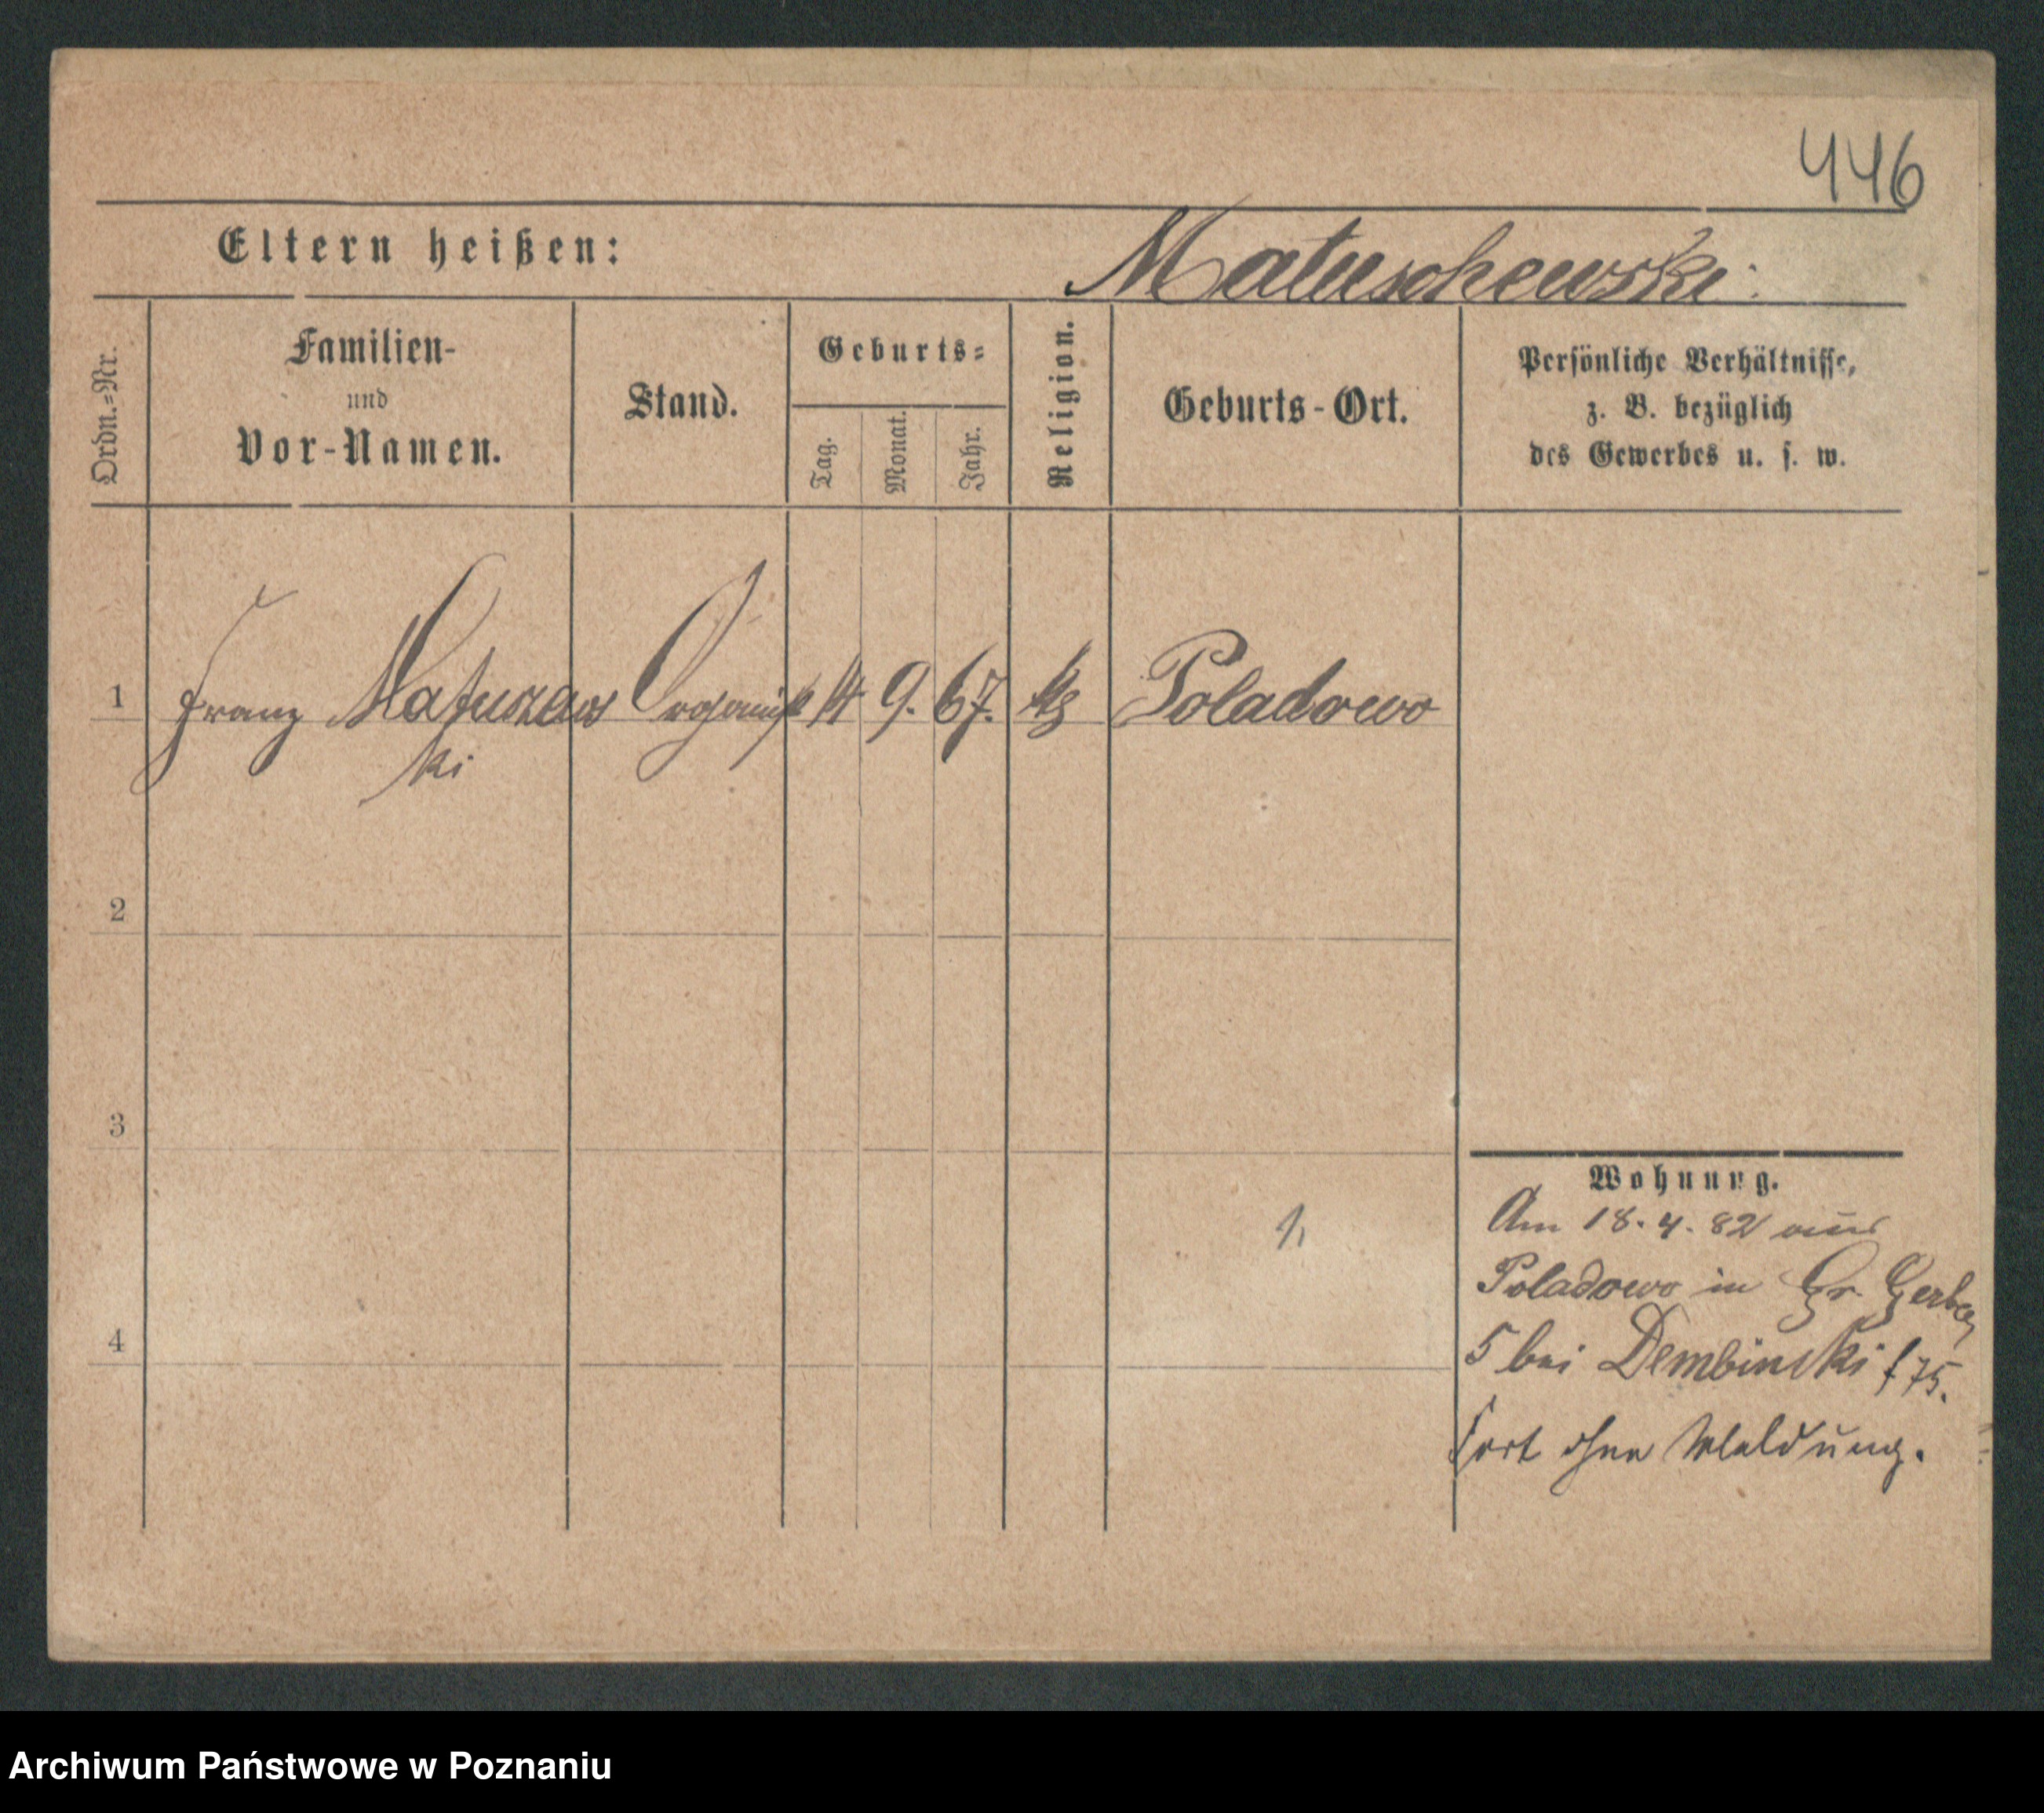 446
Eltern heißen:
Matuschewski.
Ordn.-Nr.
Familien-
und
Vor-Namen.
Stand.
Geburts-
Tag.
Monat.
Jahr.
Religion.
Geburts-Ort.
Persönliche Verhältnisse,
z. B. bezüglich
des Gewerbes u. s. w.
1 Franz Matuszews Organist 14 9. 67. Poladowo
ki
2
3
4
Wohnung.
Am 18. 4. 82 aus
Poladowo in Gr. Gerber
5 bei Dembinski f 75.
fort ohne Meldung.
Archiwum Państwowe w Poznaniu